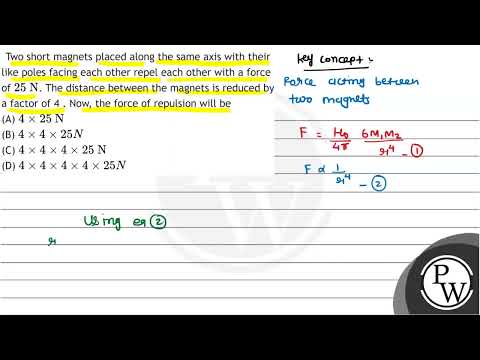 Two short magnets placed along the same axis with their
like poles facing each other repel each other with a force
of 25 N. The distance between the magnets is reduced by
a factor of 4 . Now, the force of repulsion will be
(A) 4 × 25 N
(B) 4 × 4 × 25N
(C) 4 × 4 × 4 × 25 N
(D) 4 × 4 × 4 × 4 × 25N
Key concept :
Force acting between
two magnets
F = μ0/4π 6M1M2/r^4 - ①
F ∝ 1/r^4 - ②
Using eq ②
r
P
W